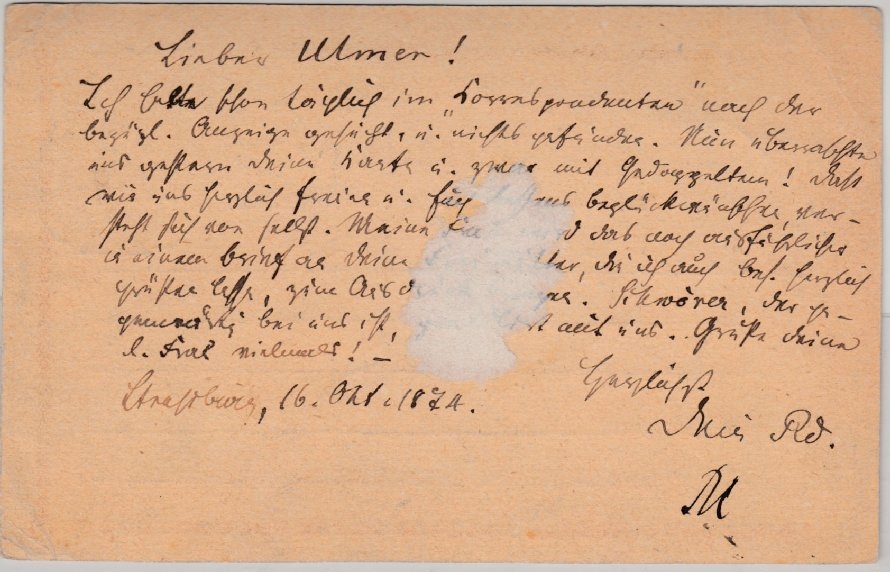 Lieber Ulmer!
Ich hatte schon täglich im „Correspondenten" nach der
bezügl. Anzeige gesucht, u. nichts gefunden. Nun überraschte
uns gestern Deine Karte u. zwar mit Gedoppeltem! Daß
wir uns herzlich freuen u. Euch beglückwünschen, ver-
steht sich von selbst. Meine das noch ausführlicher
in einem Brief an Deine die ich auch bes. herzlich
grüßen lasse, zum Schwörer, der ge-
genwärtig bei uns ist, mit uns. Grüße Deine
l. Frau vielmals! –
Straßburg, 16. Okt. 1874.
Herzlichst
Dein Rd.